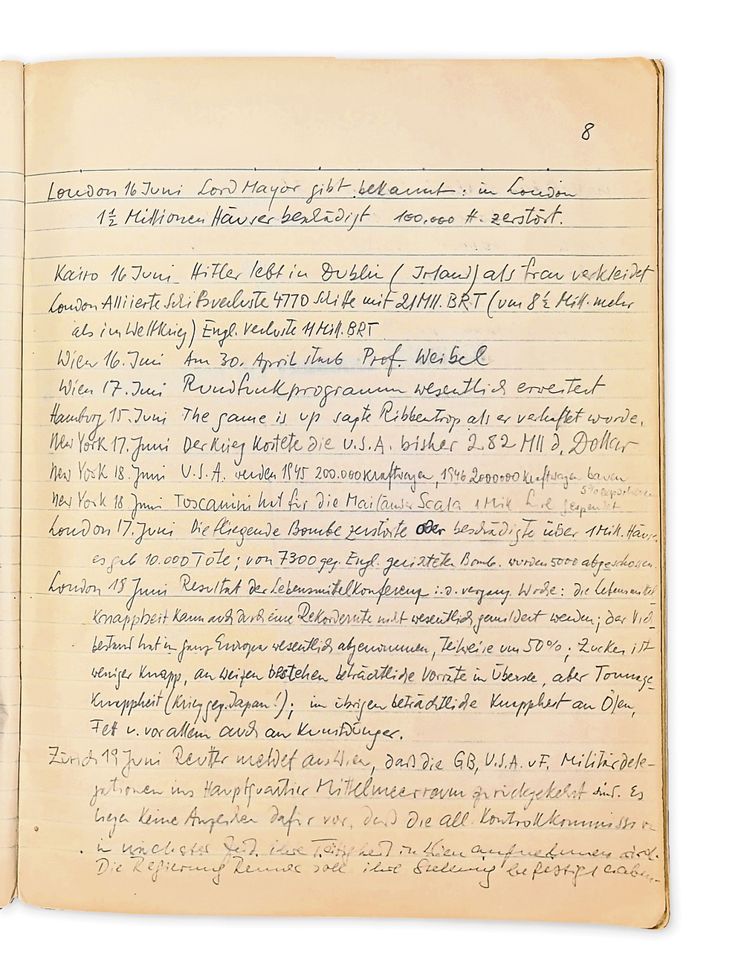 8
London 16 Juni Lord Mayor gibt bekannt: in London
1½ Millionen Häuser beschädigt 100.000 H. zerstört.
Kairo 16 Juni Hitler lebt in Dublin (Irland) als Frau verkleidet
London Alliierte Schiffsverluste 4770 Schiffe mit 21 Mill. BRT (um 8½ Mill. mehr
als im Weltkrieg) Engl. Verluste 11 Mill. BRT
Wien 16. Juni Am 30. April starb Prof. Weibel
Wien 17. Juni Rundfunkprogramm wesentlich erweitert
Hamburg 15 Juni The game is up sagte Ribbentrop als er verhaftet wurde.
New York 17. Juni Der Krieg kostete die U.S.A. bisher 282 Mll d, Dollar
New York 18 Juni U.S.A. werden 1945 200.000 Kraftwagen, 1946 2000000 Kraftwagen bauen
New York 18 Juni Toscanini hat für die Mailänder Scala 1 Mill. Lire gespendet
London 17. Juni Die fliegende Bombe zerstörte oder beschädigte über 1 Mill. Häuser
es gab 10.000 Tote; von 7300 geg. Engl. gerichteten Bomb. wurden 5000 abgeschossen.
London 18 Juni Resultat der Lebensmittelkonferenz i.d. vergang. Woche: die Lebensmittel
Knappheit kann auch durch eine Rekordernte nicht wesentlich gemildert werden; der Vieh
bestand hat in ganz Europa wesentlich abgenommen, teilweise um 50%; Zucker ist
weniger knapp, an Weizen bestehen beträchtliche Vorräte in Übersee, aber Tonnage-
Knappheit (Krieg geg. Japan!); im übrigen beträchtliche Knappheit an Ölen,
Fett u. vor allem auch an Kunstdünger.
Zürich 19 Juni Reuter meldet aus Wien, daß die GB, U.S.A. u F. Militärdele-
gationen ins Hauptquartier Mittelmeerraum zurückgekehrt sind. Es
liegen keine Anzeichen dafür vor, daß die all. Kontrollkommission
in nächster Zeit ihre Tätigkeit in Wien aufnehmen wird.
Die Regierung Renner soll ihre Stellung befestigt haben.